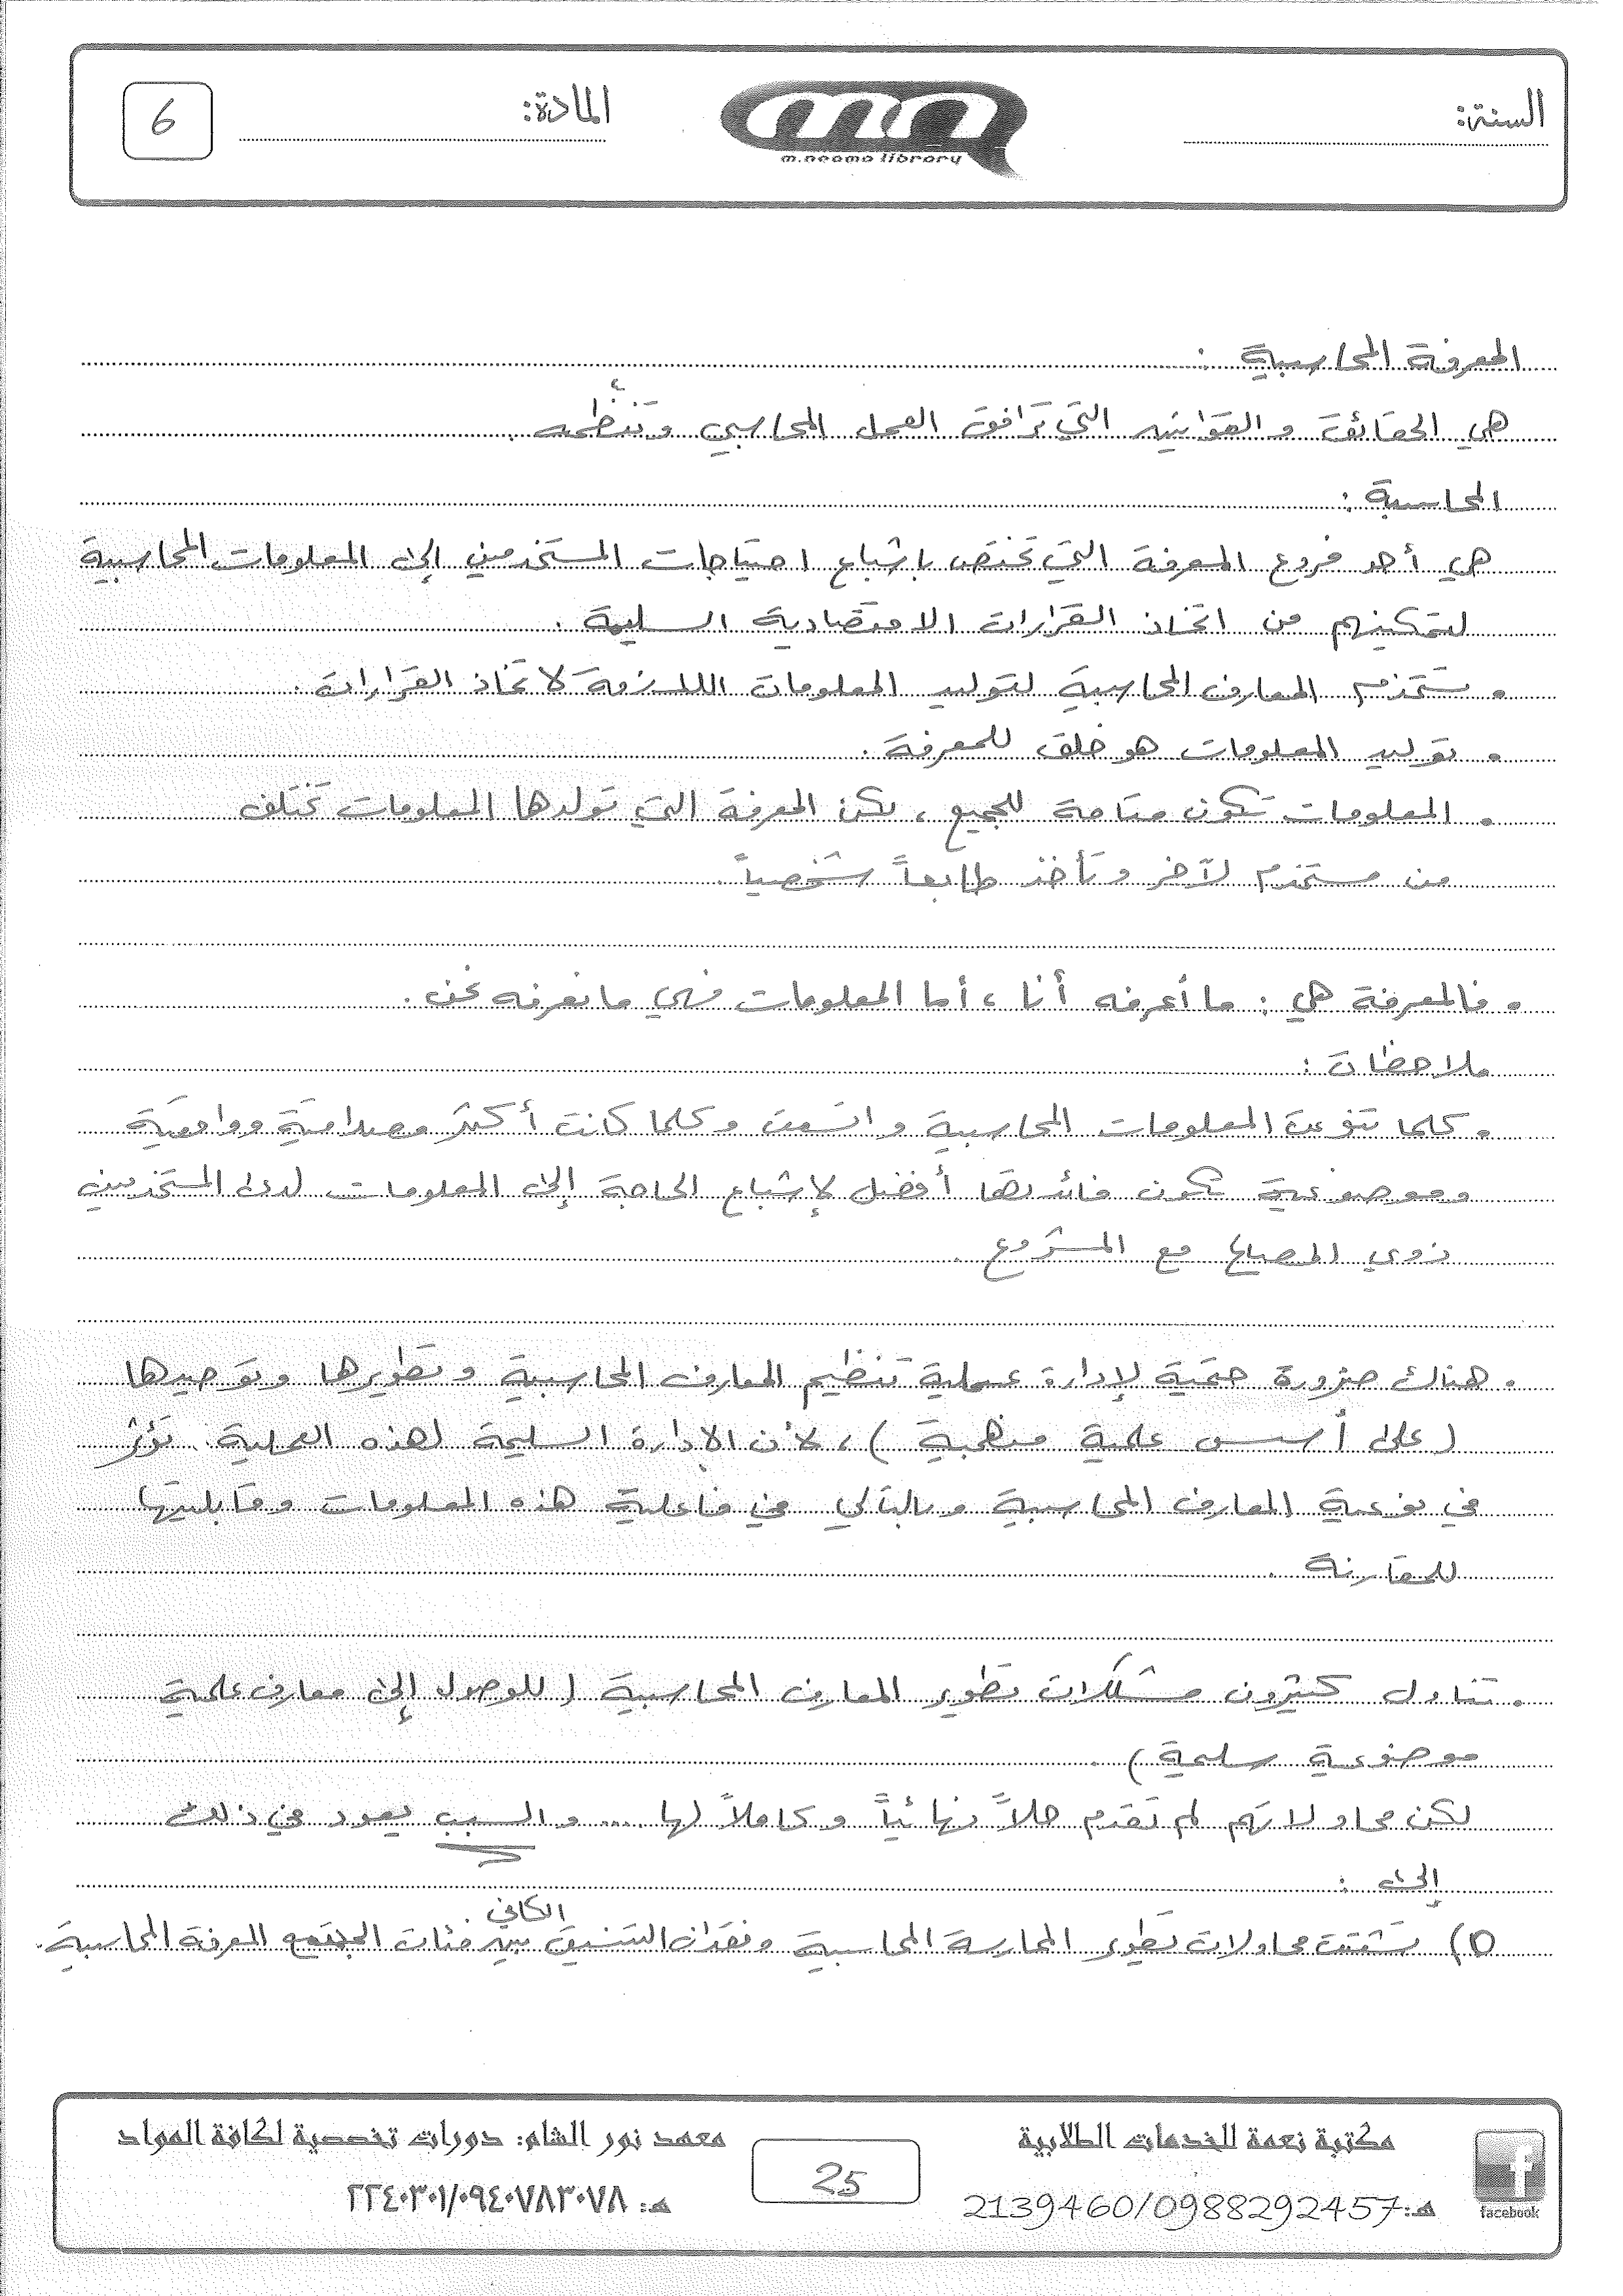 السنة:
m.neama library
المادة:
6
المعرفة المحاسبية :
هي الحقائق و القوانين التي ترافق العمل المحاسبي وتنظمه .
المحاسبة :
هي أحد فروع المعرفة التي تختص باشباع احتياجات المستخدمين إلى المعلومات المحاسبية
لتمكينهم من اتخاذ القرارات الاقتصادية السليمة .
• تستخدم المعارف المحاسبية لتوليد المعلومات اللازمة لاتخاذ القرارات .
• توليد المعلومات هو خلق للمعرفة .
• المعلومات تكون متاحة للجميع ، لكن المعرفة التي تولدها المعلومات تختلف
من مستخدم لآخر و تأخذ طابعاً شخصياً .
• فالمعرفة هي : ما أعرفه أنا ، أما المعلومات فهي ما نعرفه نحن .
ملاحظات :
• كلما تنوعت المعلومات المحاسبية و اتسعت و كلما كانت أكثر مصداقية وواقعية
وموضوعية تكون فائدتها أفضل لإشباع الحاجة إلى المعلومات لدى المستخدمين
ذوي المصالح مع المشروع .
• هناك ضرورة حتمية لإدارة عملية تنظيم المعارف المحاسبية و تطويرها وتوحيدها
( على أسس علمية منهجية ) ، لأن الإدارة السليمة لهذه العملية تؤثر
في نوعية المعارف المحاسبية و بالتالي في فاعلية هذه المعلومات و قابليتها
للمقارنة .
• تناول كثيرون مشكلات تطوير المعارف المحاسبية ( للوصول إلى معارف علمية
موضوعية سليمة ) .
لكن محاولاتهم لم تقدم حلاً نهائياً و كاملاً لها .... و السبب يعود في ذلك
إلى :
1) تشتت محاولات تطوير الممارسة المحاسبية و فقدان التنسيق الكافي بين فئات المجتمع المعرفة المحاسبية .
facebook
مكتبة نعمة للخدمات الطلابية
هـ: 2139460/0988292457
25
معهد نور الشام: دورات تخصصية لكافة المواد
هـ: ٢٢٤٠٣٠١/٠٩٤٠٧٨٣٠٧٨